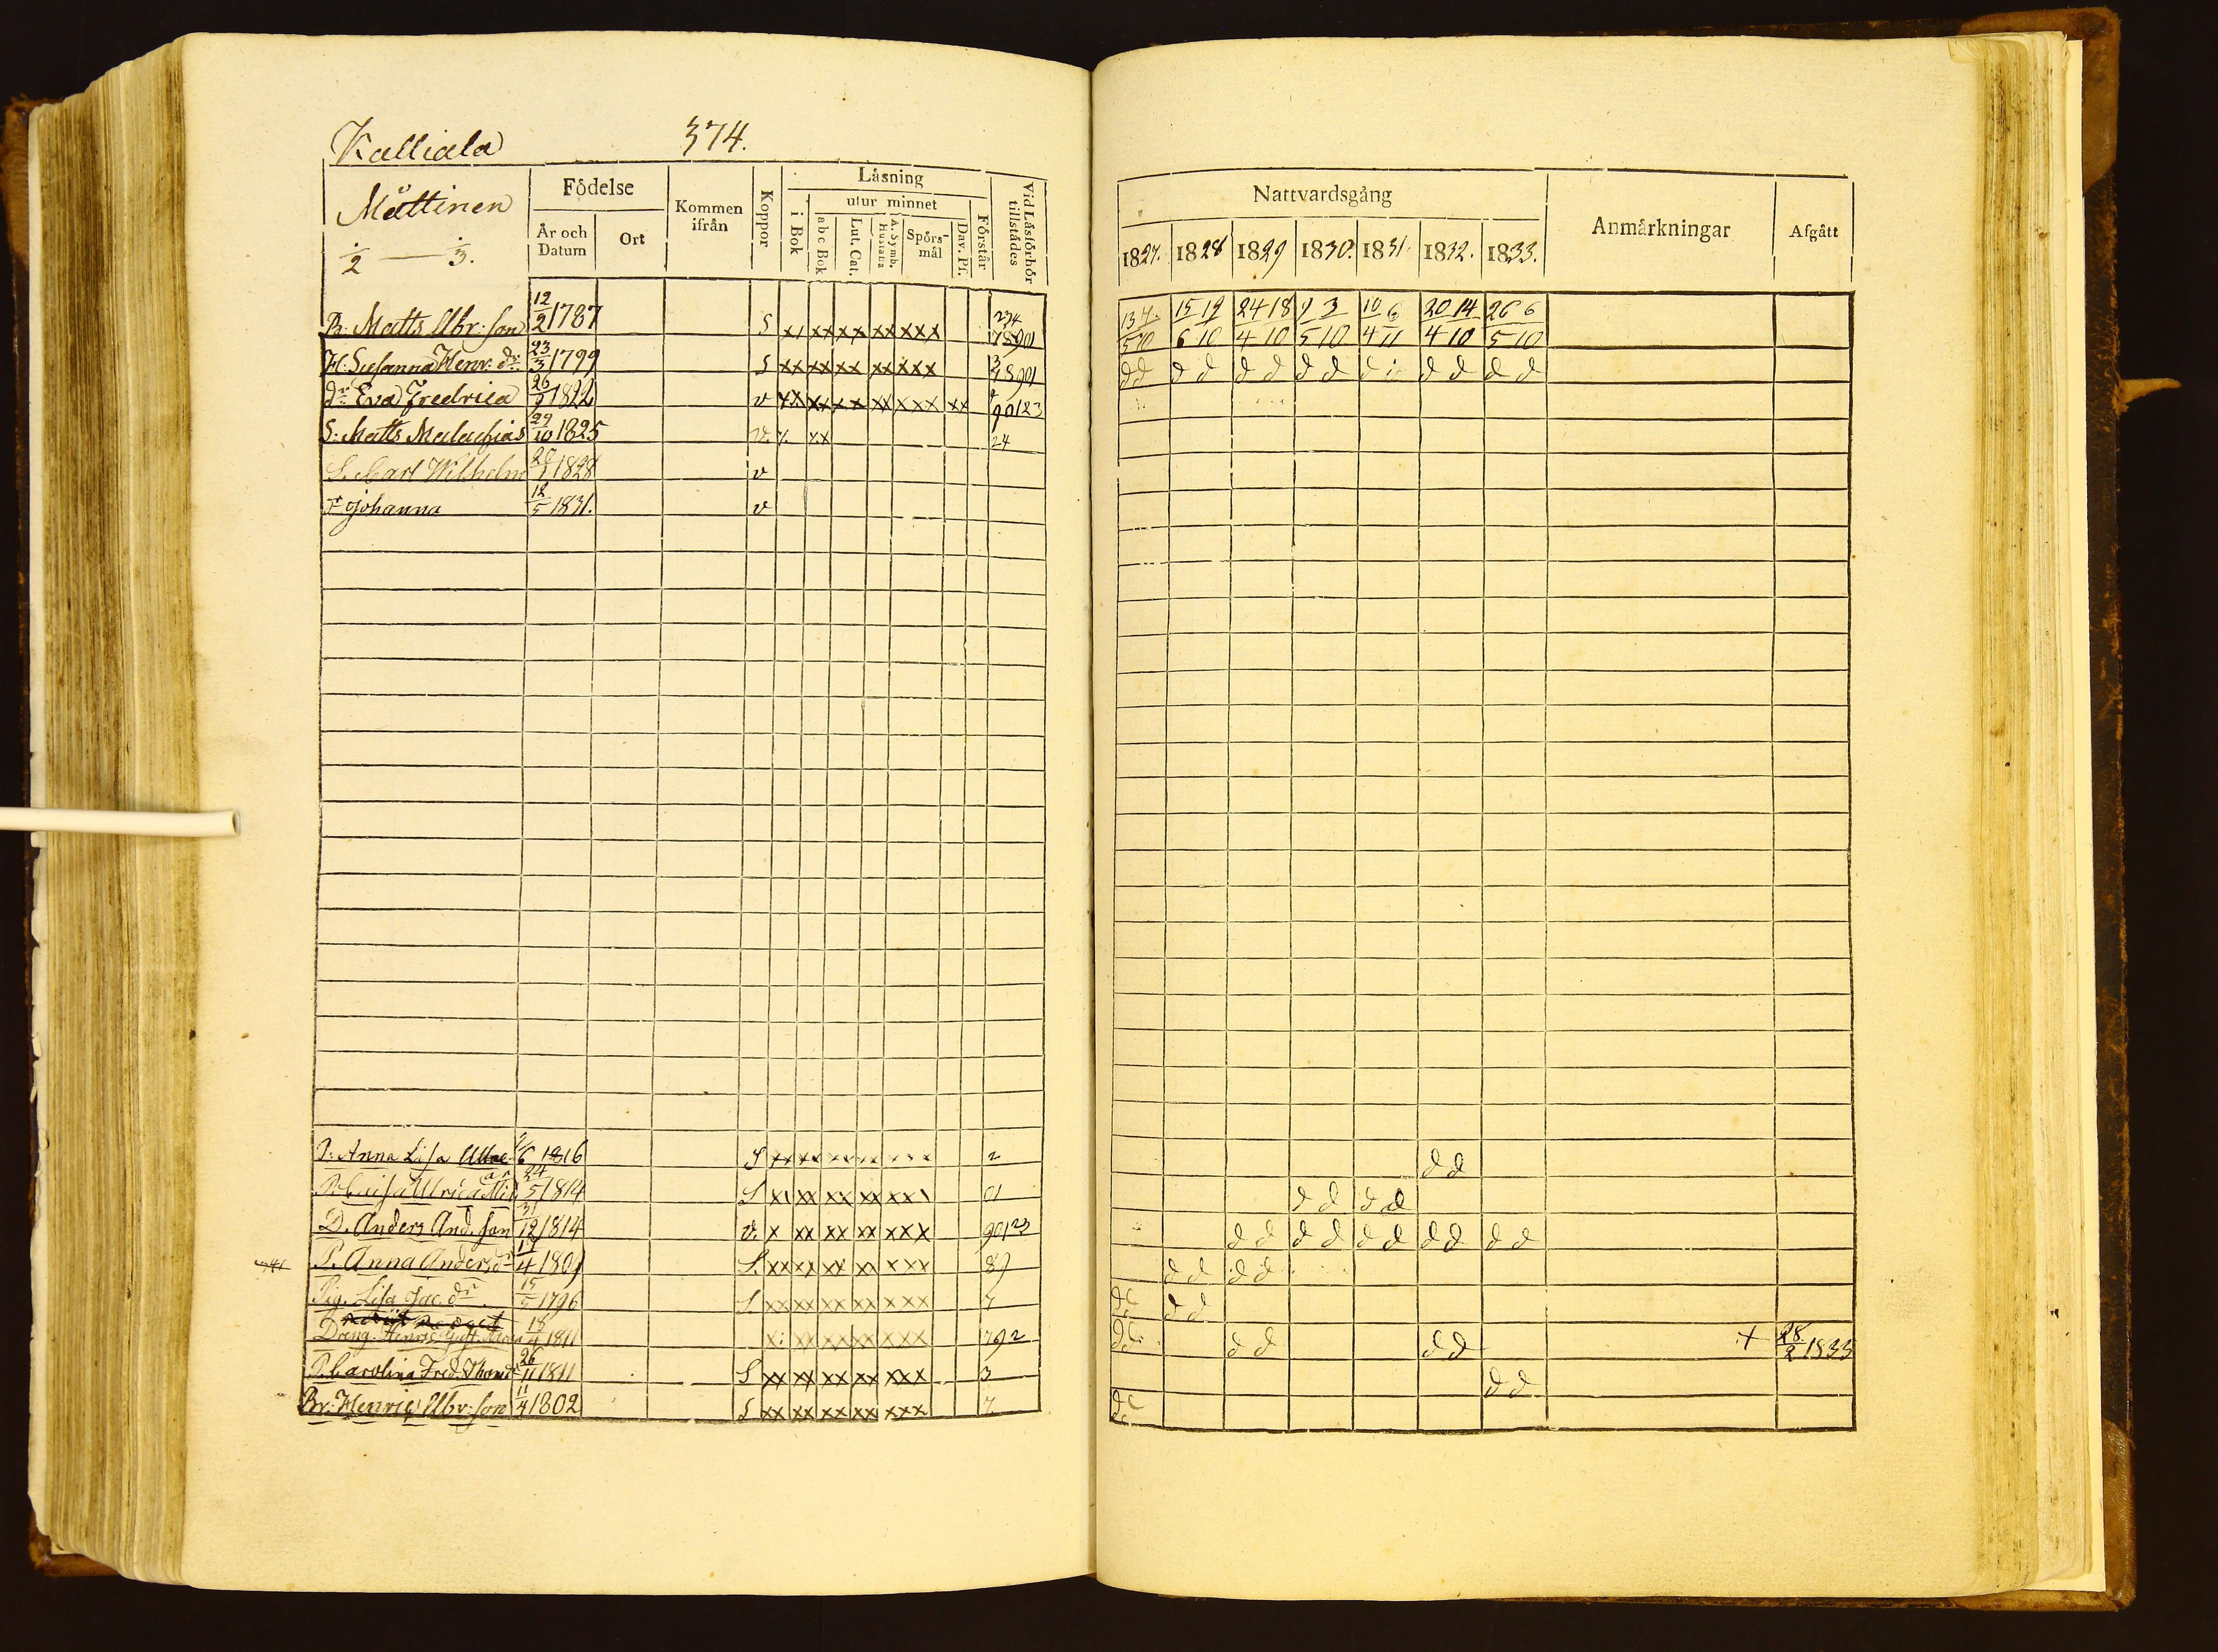 Kalliala 374.
Måttinen
1/2 — 1/3.
Födelse
År och Datum
Ort
Kommen ifrån
Koppor
Läsning
utur minnet
i Bok
abc Bok
Lut. Cat.
A. Symb. Hustafla
Spörsmål
Dav. Pf.
Förstår
Vid Läsförhör tillstädes
Nattvardsgång
1827. 1828 1829 1830. 1831. 1832. 1833.
Anmärkningar
Afgått
B: Matts Abr: son 12/2 1787 S xx xx xx xx xxx 234 78901 15/6 19/10 24/4 18/10 9/5 3/10 10/4 6/11 20/4 14/10 26/5 6/10
H: Susanna Henr: dr 23/3 1799 S xx xx xx xx xxx 78901 dd dd dd dd dd dd
dr Eva Fredrica 26/9 1822 v xx xx xx xx xxx xx 90123
S: Matts Malachias 29/10 1825 v. x xx 24
S. Carl Wilhelm 1828 v
Johanna 12/5 1831. v
P: Anna Lisa 1816 S xx xx xx xx xxx 2 dd
P. Caisa Ulrica 24/5 1814 S xx xx xx xx xxx 01 dd dd
D. Anders And. son 31/12 1814 v. x xx xx xx xxx 90123 dd dd dd dd dd
P. Anna Anders dr 1809 S. xx xx xx xx xxx 89 dd dd
Pig. Lisa Jac. dr 15/5 1796 S xx xx xx xx xxx 7 dd
Dräng. Henric Gust. 18/4 1811 x: xx xx xx xxx 792 dd dd + 28/2 1833
P. Carolina Fred. Thom dr 26/11 1811 S xx xx xx xx xxx 3 dd
Br: Henric Abr: son 11/4 1802 S xx xx xx xx xxx 7